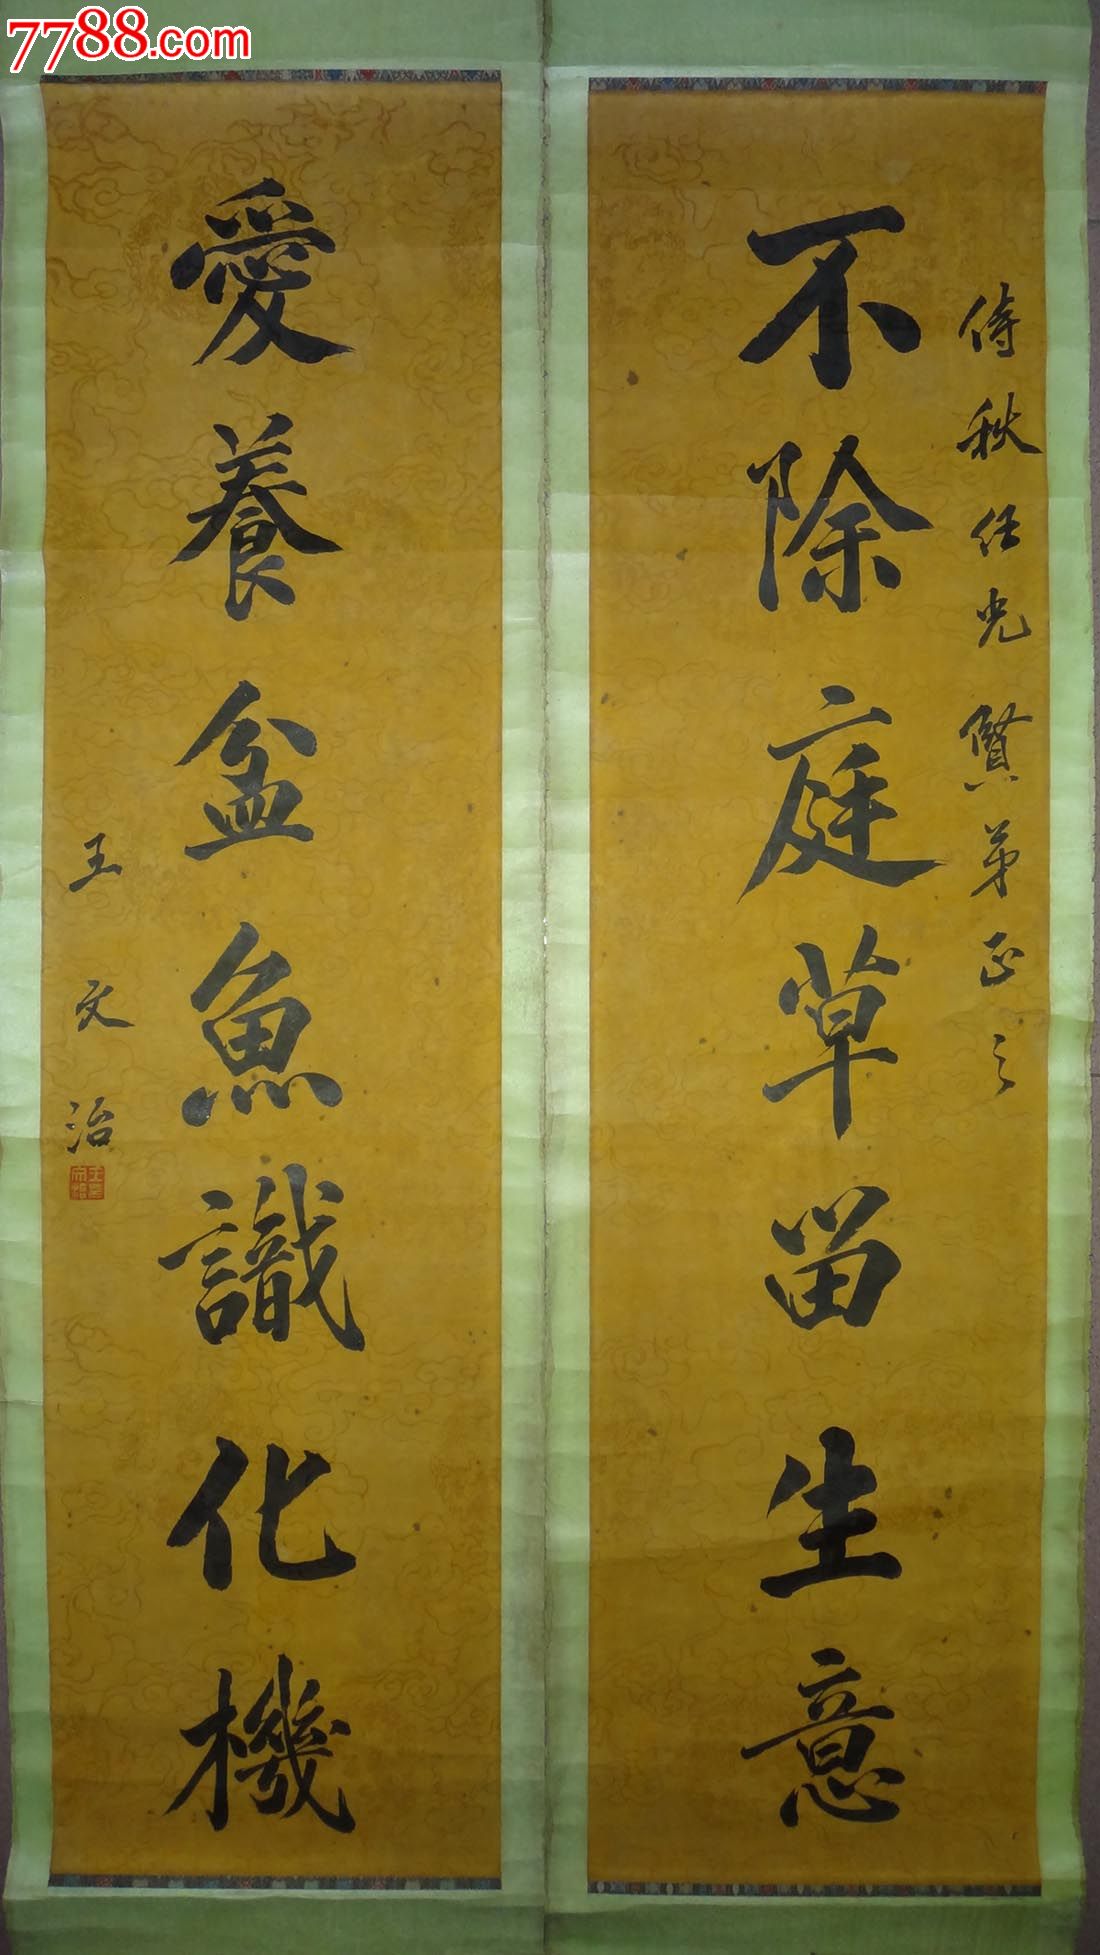 7788.com
侍秋仁兄賢弟正之
不除庭草留生意
愛養盆魚識化機
王文治